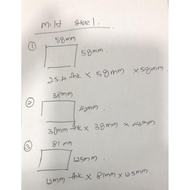 mild steel.
①
58mm
58mm
25.4 thk x 58mm x 58mm
②
38mm
42mm
30mm thk x 38mm x 42mm
③
81m
125mm
12mm thk x 81mm x 125mm